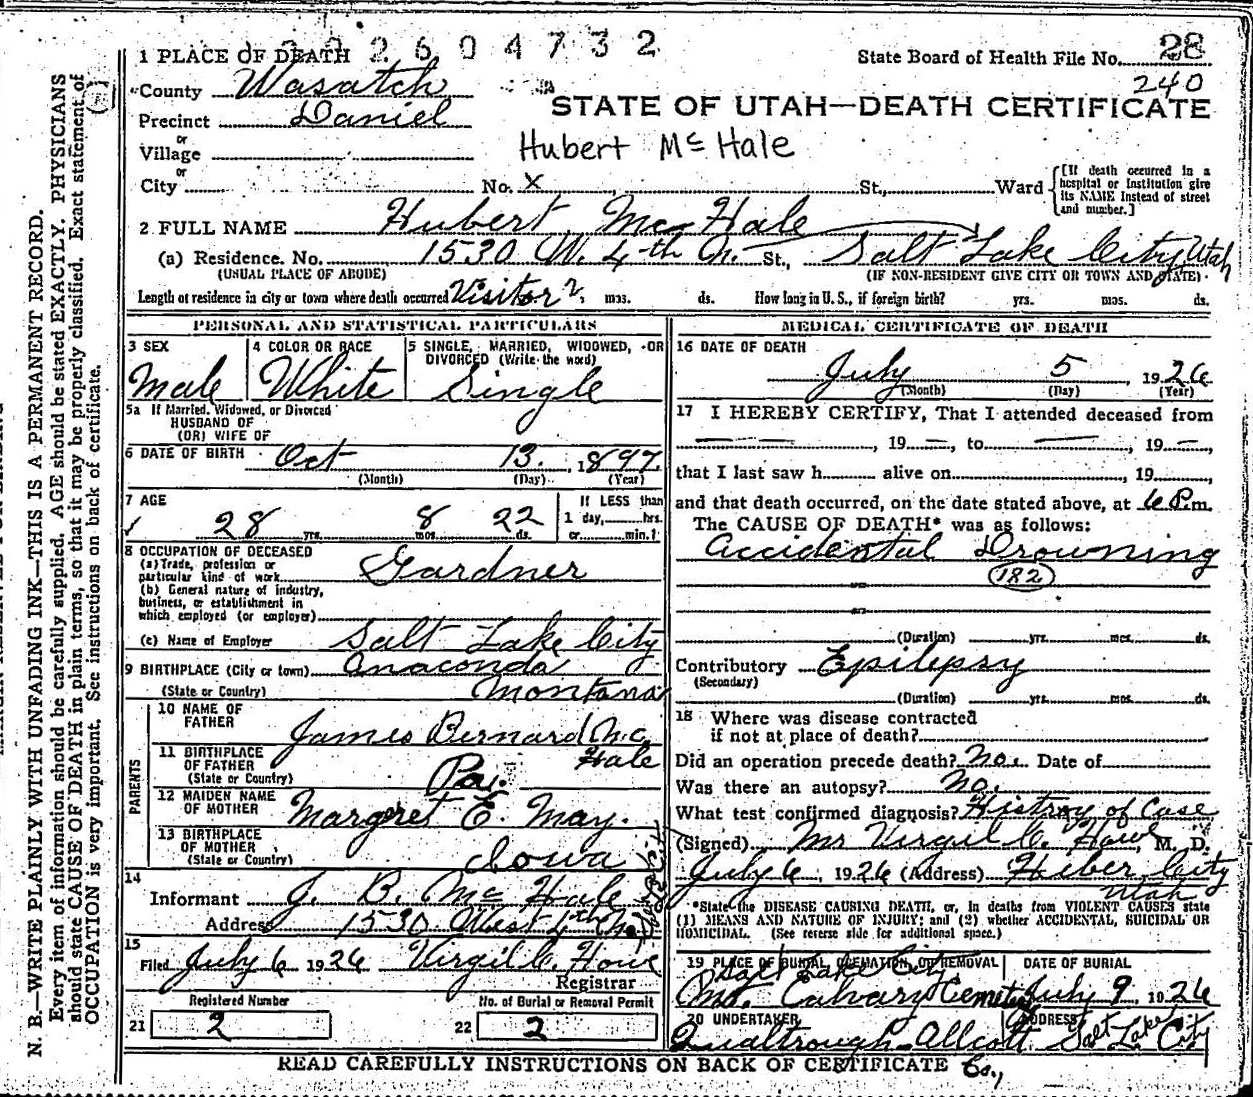 1 PLACE OF DEATH 2 6 0 4 7 3 2
State Board of Health File No. 28
240
County Wasatch
STATE OF UTAH—DEATH CERTIFICATE
Precinct Daniel
or
Village
Hubert McHale
or
City No. X St., Ward
[If death occurred in a
hospital or institution give
its NAME instead of street
and number.]
2 FULL NAME Hubert McHale
(a) Residence. No. 1530 W. 4th N. St., Salt Lake City, Utah
(USUAL PLACE OF ABODE) (IF NON-RESIDENT GIVE CITY OR TOWN AND STATE)
Length of residence in city or town where death occurred Visitor mos. ds. How long in U. S., if foreign birth? yrs. mos. ds.
PERSONAL AND STATISTICAL PARTICULARS
3 SEX
Male
4 COLOR OR RACE
White
5 SINGLE, MARRIED, WIDOWED, OR
DIVORCED (Write the word)
Single
5a If Married, Widowed, or Divorced
HUSBAND OF
(OR) WIFE OF
6 DATE OF BIRTH Oct 13, 1897
(Month) (Day) (Year)
7 AGE
28 yrs. 8 mos. 22 ds.
If LESS than
1 day, hrs.
or min.?
8 OCCUPATION OF DECEASED
(a) Trade, profession or
particular kind of work Gardner
(b) General nature of industry,
business, or establishment in
which employed (or employer)
(c) Name of Employer Salt Lake City
9 BIRTHPLACE (City or town) Anaconda
(State or Country) Montana
PARENTS
10 NAME OF
FATHER James Bernard Mc
Hale
11 BIRTHPLACE
OF FATHER
(State or Country) Pa.
12 MAIDEN NAME
OF MOTHER Margret E. May.
13 BIRTHPLACE
OF MOTHER
(State or Country) Iowa
14
Informant J. B. McHale
Address 1530 West 4th No.
15
Filed July 6 1926 Virgil C. Howe
Registrar
Registered Number
21 2
No. of Burial or Removal Permit
22 2
MEDICAL CERTIFICATE OF DEATH
16 DATE OF DEATH
July 5, 1926
(Month) (Day) (Year)
17 I HEREBY CERTIFY, That I attended deceased from
—, 19 —, to —, 19 —,
that I last saw h alive on , 19 ,
and that death occurred, on the date stated above, at 6 P.m.
The CAUSE OF DEATH* was as follows:
Accidental Drowning
182
(Duration) yrs. mos. ds.
Contributory Epilepsy
(Secondary)
(Duration) yrs. mos. ds.
18 Where was disease contracted
if not at place of death?
Did an operation precede death? No. Date of
Was there an autopsy? No.
What test confirmed diagnosis? Histroy of Case
(Signed) Mr Virgil C. Howe, M. D.
July 6, 1926 (Address) Heber City
Utah
*State the DISEASE CAUSING DEATH, or, in deaths from VIOLENT CAUSES state
(1) MEANS AND NATURE OF INJURY; and (2) whether ACCIDENTAL, SUICIDAL OR
HOMICIDAL. (See reverse side for additional space.)
19 PLACE OF BURIAL, CREMATION, OR REMOVAL
Salt Lake City
Mt. Calvary Cemetery
DATE OF BURIAL
July 9, 1926
20 UNDERTAKER
Qualtrough-Allcott
ADDRESS
Salt Lake
City
READ CAREFULLY INSTRUCTIONS ON BACK OF CERTIFICATE Co.,
N. B.—WRITE PLAINLY WITH UNFADING INK—THIS IS A PERMANENT RECORD.
Every item of information should be carefully supplied. AGE should be stated EXACTLY. PHYSICIANS
should state CAUSE OF DEATH in plain terms, so that it may be properly classified. Exact statement of
OCCUPATION is very important. See instructions on back of certificate.